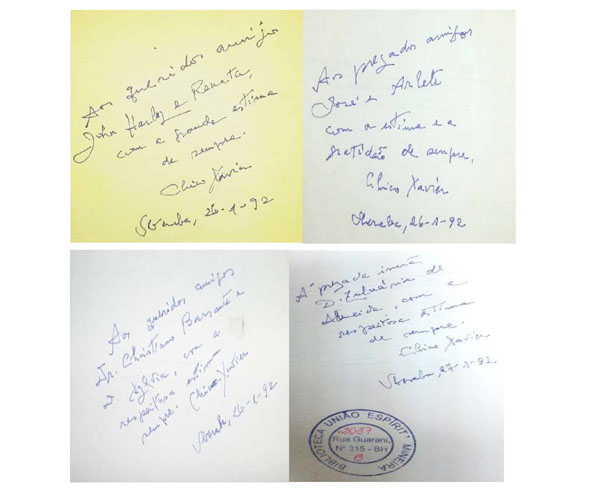 Aos queridos amigos
John Harley e Renata,
com a grande estima
de sempre.
Chico Xavier
Uberaba, 26-1-92
Aos prezados amigos
José e Arlete
com a estima e a
gratidão de sempre,
Chico Xavier
Uberaba, 26-1-92
Aos queridos amigos
Dr. Christiano e
D. Sylvia, com a
respeitosa estima
sempre. Chico Xavier
Uberaba, 26-1-92
À prezada irmã
D. de
Almeida, com a
respeitosa estima
de sempre.
Chico Xavier
Uberaba 27-1-92
BIBLIOTECA UNIÃO ESPÍRIT' MINEIRA
Rua Guarani,
Nº 315 - BH